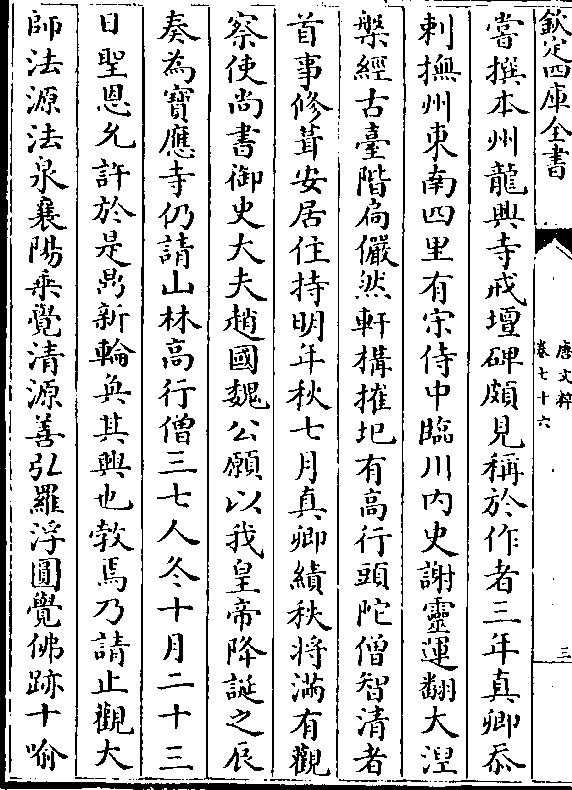 欽定四庫全書
唐文粹
卷七十六
三
嘗撰本州龍興寺戒壇碑頗見稱於作者三年真卿忝
刺撫州東南四里有宋侍中臨川内史謝靈運翻大湼
槃經古臺階扃儼然軒搆摧圮有高行頭陀僧智清者
首事修葺安居住持明年秋七月真卿績秩將滿有觀
察使尚書御史大夫趙國魏公願以我皇帝降誕之辰
奏為寶應寺仍請山林高行僧三七人冬十月二十三
日聖恩允許於是鼎新輪奐其興也勃焉乃請止觀大
師法源法泉襄陽乗覺清源善弘羅浮圓覺佛跡十喻